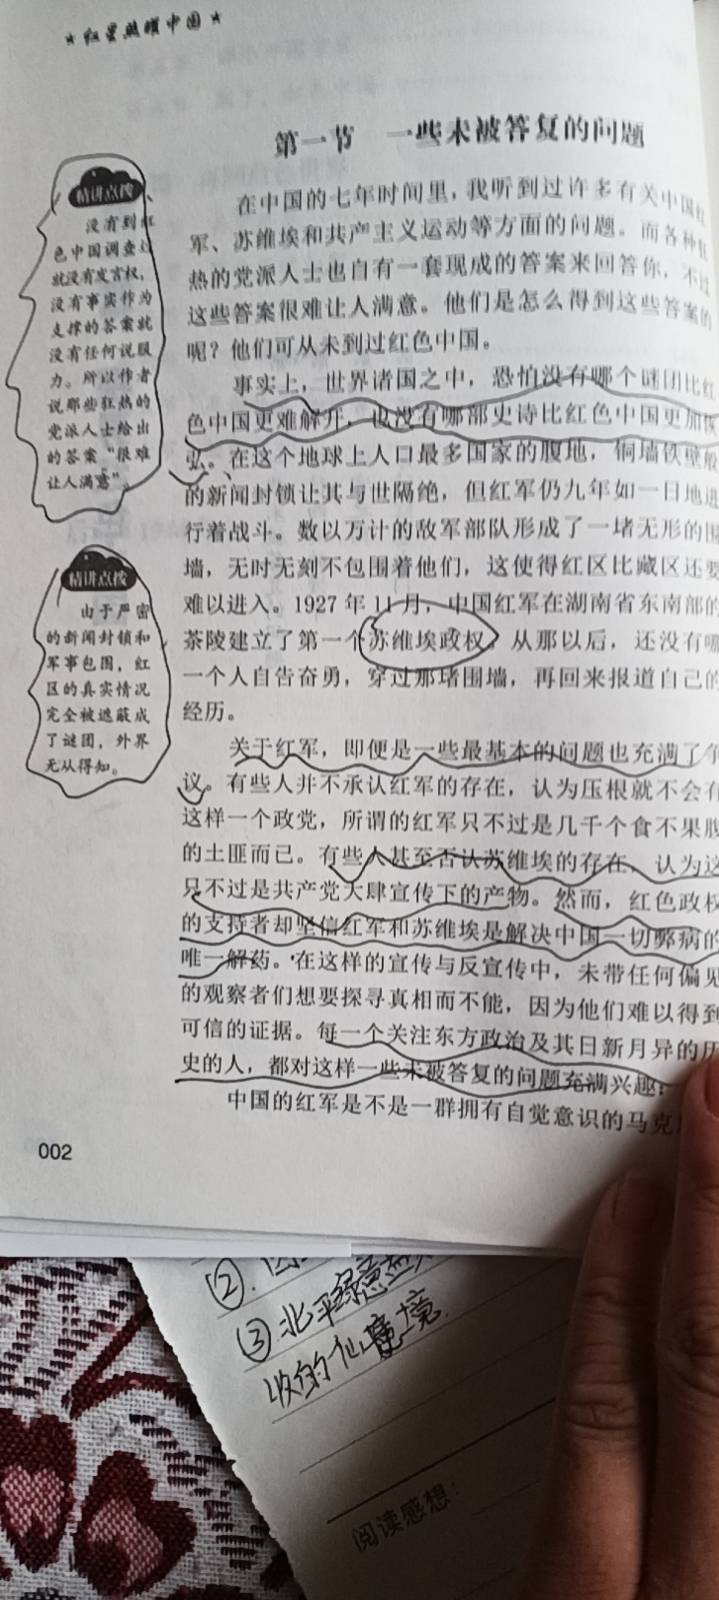 ★红星照耀中国★
第一节 一些未被答复的问题
精讲点拨
没有到红
色中国调查过
就没有发言权，
没有事实作为
支撑的答案就
没有任何说服
力。所以作者
说那些狂热的
党派人士给出
的答案“很难
让人满意”。
精讲点拨
由于严密
的新闻封锁和
军事包围，红
区的真实情况
完全被遮蔽成
了谜团，外界
无从得知。
在中国的七年时间里，我听到过许多有关中国红
军、苏维埃和共产主义运动等方面的问题。而各种狂
热的党派人士也自有一套现成的答案来回答你，不过
这些答案很难让人满意。他们是怎么得到这些答案的
呢？他们可从未到过红色中国。
事实上，世界诸国之中，恐怕没有哪个谜团比红
色中国更难解开，也没有哪部史诗比红色中国更加恢
弘。在这个地球上人口最多国家的腹地，铜墙铁壁般
的新闻封锁让其与世隔绝，但红军仍九年如一日地进
行着战斗。数以万计的敌军部队形成了一堵无形的围
墙，无时无刻不包围着他们，这使得红区比藏区还要
难以进入。1927年11月，中国红军在湖南省东南部的
茶陵建立了第一个苏维埃政权。从那以后，还没有哪
一个人自告奋勇，穿过那堵围墙，再回来报道自己的
经历。
关于红军，即便是一些最基本的问题也充满了争
议。有些人并不承认红军的存在，认为压根就不会有
这样一个政党，所谓的红军只不过是几千个食不果腹
的土匪而已。有些人甚至否认苏维埃的存在，认为这
只不过是共产党大肆宣传下的产物。然而，红色政权
的支持者却坚信红军和苏维埃是解决中国一切弊病的
唯一解药。在这样的宣传与反宣传中，未带任何偏见
的观察者们想要探寻真相而不能，因为他们难以得到
可信的证据。每一个关注东方政治及其日新月异的历
史的人，都对这样一些未被答复的问题充满兴趣：
中国的红军是不是一群拥有自觉意识的马克
002
②.
③北平绿意盎
收的仙境.
阅读感想：